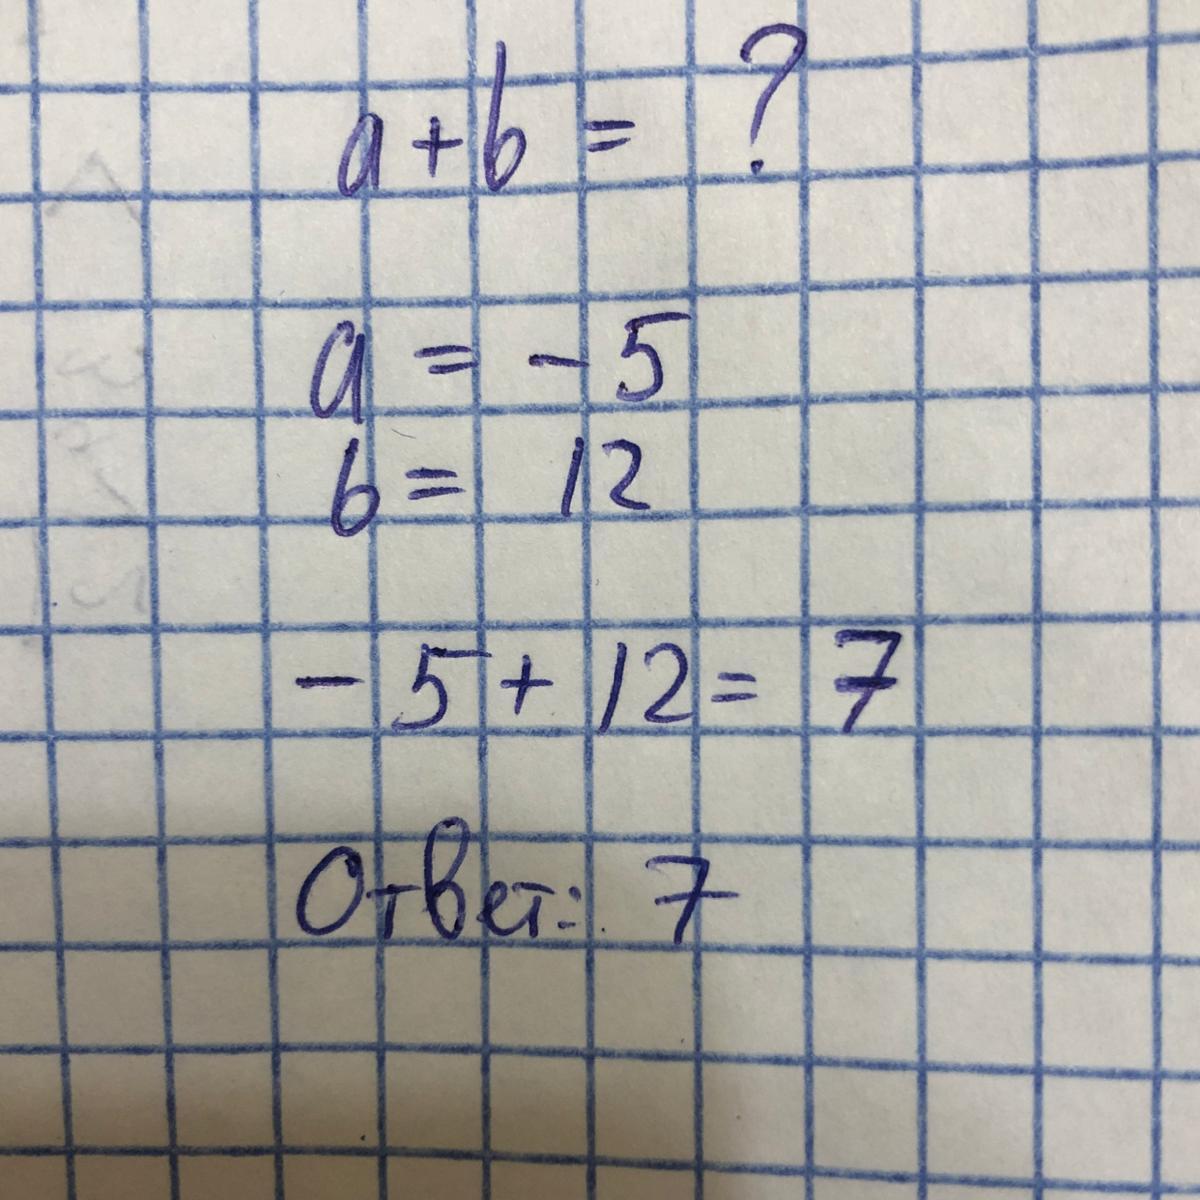 a + b = ?
a = - 5
b = 12
- 5 + 12 = 7
Ответ: 7